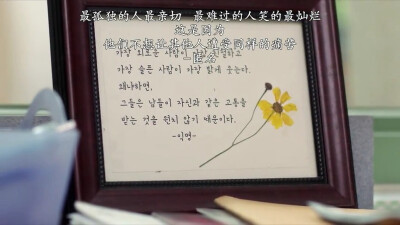 最孤独的人最亲切 最难过的人笑的最灿烂
这是因为
他们不想让其他人遭受同样的痛苦
匿名
가장 외로운 사람이 하고
가장 슬픈 사람이 가장 밝게 웃는다.
왜냐하면,
그들은 남들이 자신과 같은 고통을
받는 것을 원치 않기 때문이다.
-익명-